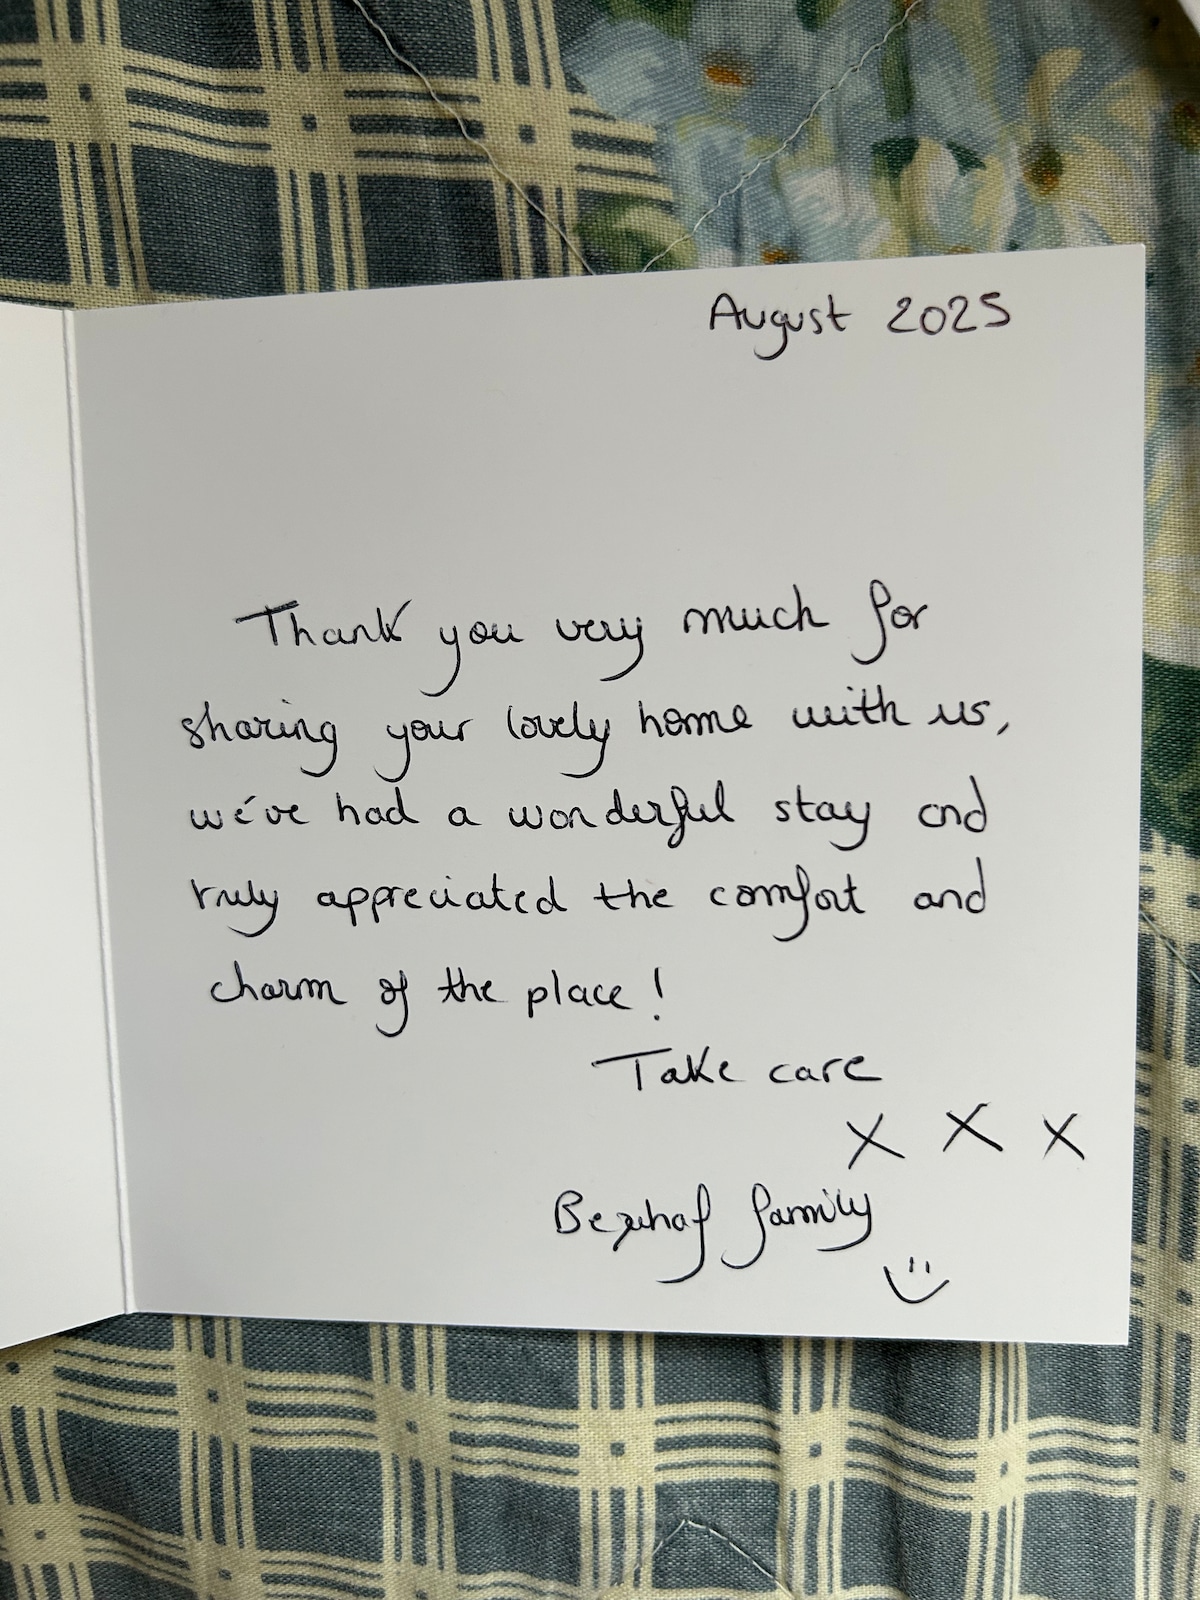 August 2025
Thank you very much for
sharing your lovely home with us,
we've had a wonderful stay and
truly appreciated the comfort and
charm of the place!
Take care
X X X
family